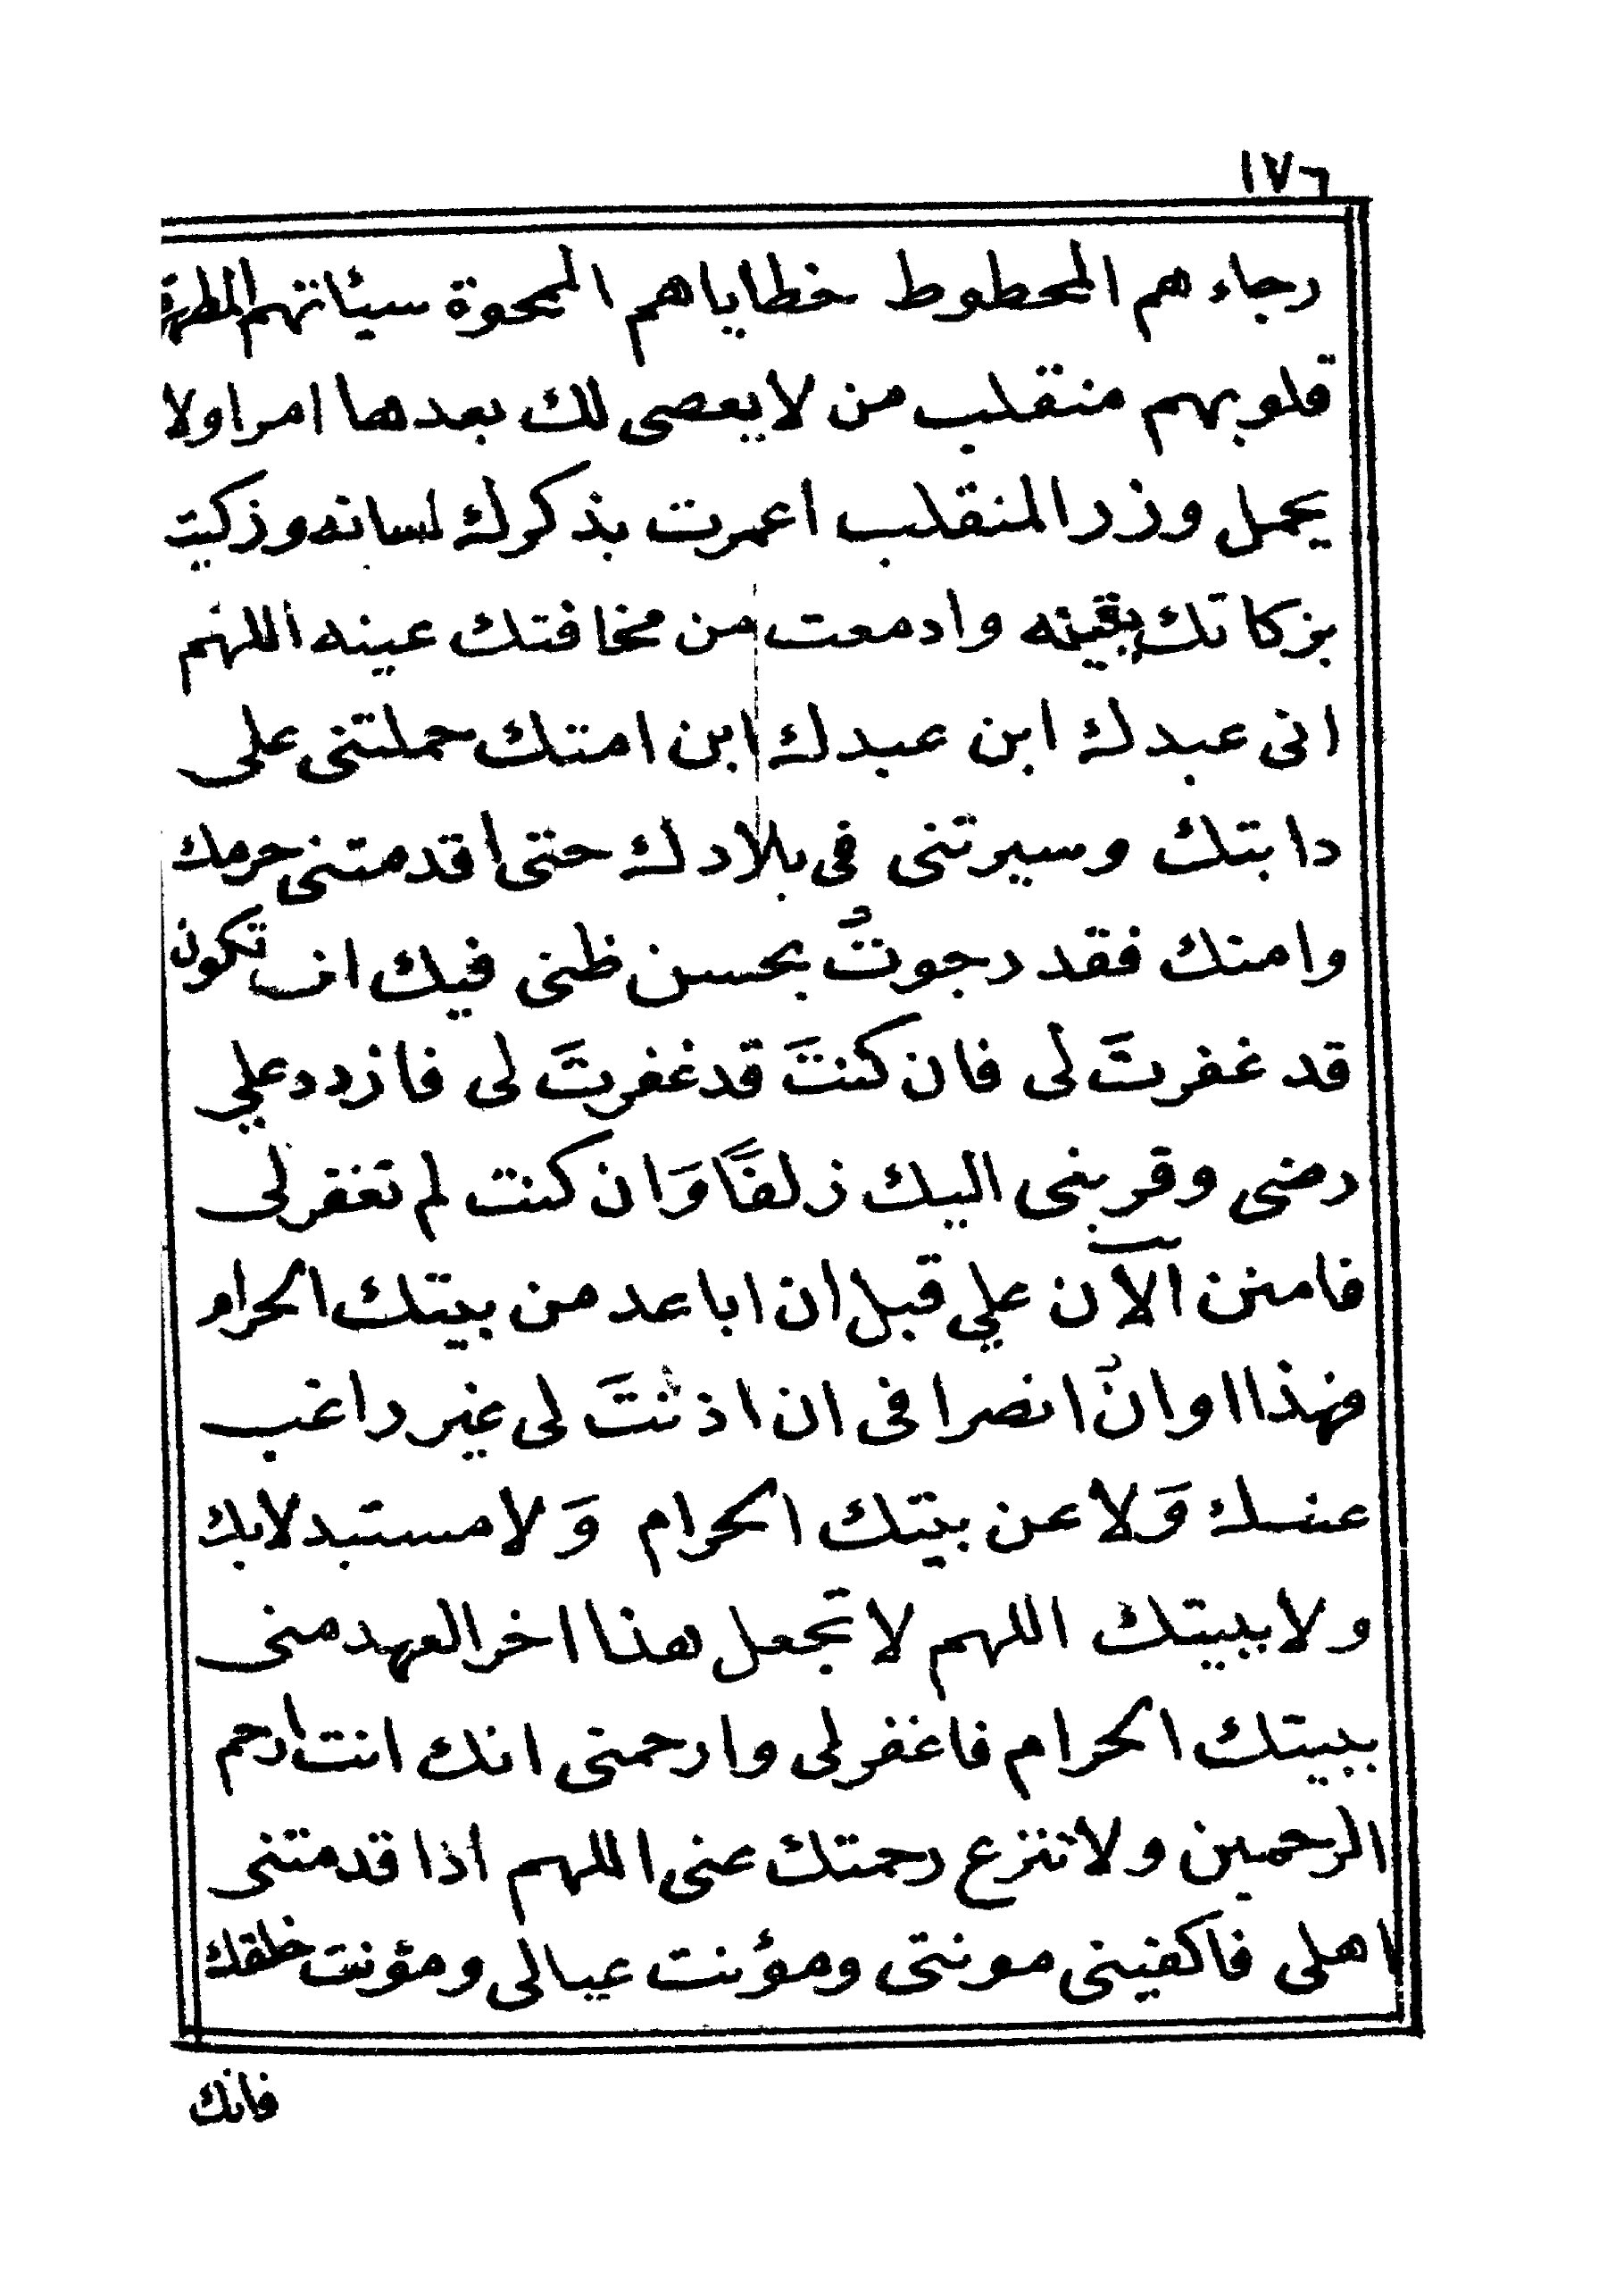 ١٧٦
رجاءهم المحطوط خطاياهم الممحوة سيئاتهم المطهرة
قلوبهم منقلب من لا يعصى لك بعدها امرا ولا
يحمل وزر المنقلب اعمرت بذكرك لسانه وزكيت
بزكاتك يقينه وادمعت من مخافتك عينه اللهم
انى عبدك ابن عبدك ابن امتك حملتنى على
دابتك وسيرتنى فى بلادك حتى اقدمتنى حرمك
وامنك فقد رجوتُ بحسن ظنى فيك ان تكون
قد غفرتَ لى فان كنتَ قد غفرتَ لى فازدد علي
رضى وقربنى اليك زلفًا وَان كنت لم تغفر لى
فامنن الآن علي قبل ان اباعد من بيتك الحرام
فهذا اوان انصرافى ان اذنتَ لى غير راغب
عنك وَلا عن بيتك الحرام وَلا مستبدلا بك
ولا ببيتك اللهم لا تجعل هذا اخر العهد منى
ببيتك الحرام فاغفر لى وارحمنى انك انت ارحم
الرحمين ولا تنزع رحمتك عنى اللهم اذا قدمتنى
اهلى فاكفينى مونتى ومؤنت عيالى ومؤنت خلقك
فانك